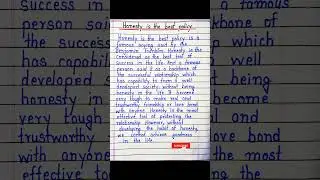 Honesty is the best policy
Honesty is the best policy is a
famous saying said by the
Benjamin Franklin. Honesty is the
considered as the best tool of
success in the life and a famous
person said it as a backbone of
the successful relationship which
has capability to form a well
developed society. without being
honesty in the life it become
very tough to make real and
trustworthy friendship or love bond
with anyone. Honesty is the most
effective tool of protecting the
relationship However, without
developing the habit of honesty,
we cannot achieve goodness
in the life.
SUBSCRIBE